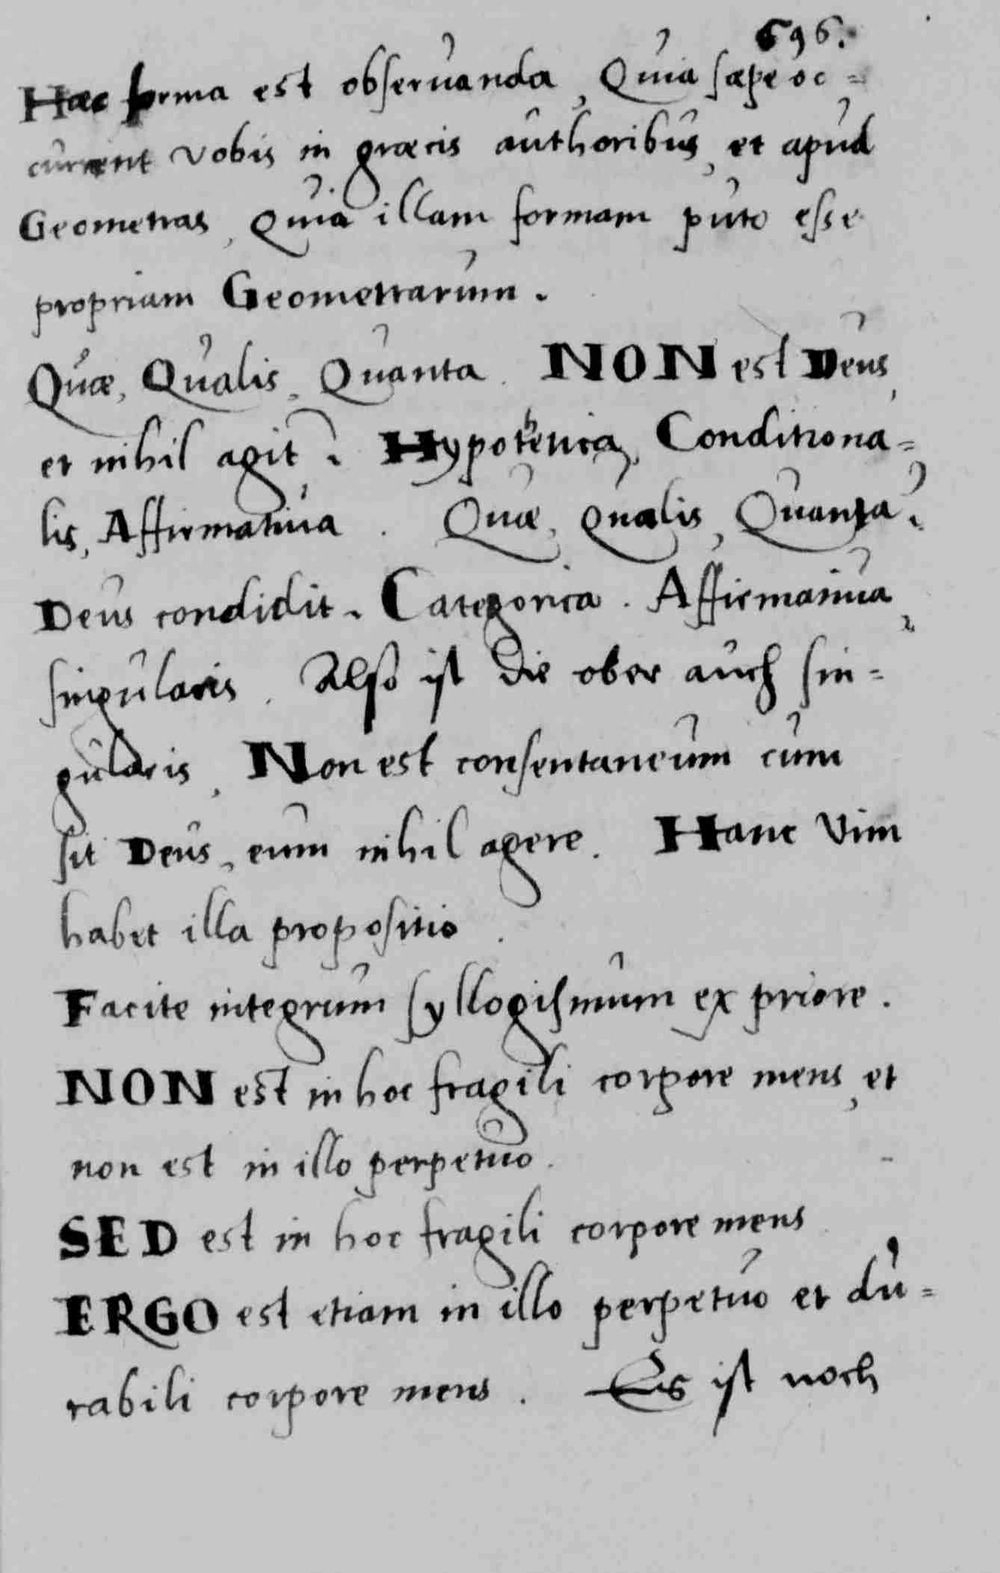 696.
Haec forma est obseruanda, Quia saepe oc=
current vobis in graecis authoribus, et apud
Geometras, Quia illam formam puto esse
propriam Geometrarum.
Quae, Qualis, Quanta. NON est Deus,
et nihil agit? Hypothetica, Conditiona=
lis, Affirmatiua. Quae, qualis, Quanta?
Deus condidit. Categorica. Affirmatiua,
singularis. Also ist die ober auch sin=
gularis, Non est consentaneum cum
sit Deus, eum nihil agere. Hanc vim
habet illa propositio.
Facite integrum syllogismum ex priore.
NON est in hoc fragili corpore mens, et
non est in illo perpetuo.
SED est in hoc fragili corpore mens
ERGO est etiam in illo perpetuo et du=
rabili corpore mens. Es ist noch